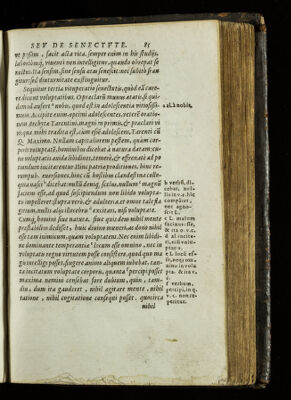 SEV DE SENECTVTE. 85
ut possim, facit acta vita. semper enim in his studijs,
laboribusq́; viuenti non intelligitur, quando obrepat se
nectus: ita sensim, sine sensu ætas senescit: nec subitò frangitur
sed diuturnitate extinguitur.
Sequitur tertia vituperatio senectutis, quòd eã carere
dicunt voluptatibus. O præclarũ munus ætatis, si quidem
id aufert nobis, quod est in adolescentia vitiosissimum
Accipite enim, optimi adolescentes, veterẽ orationem
Archytæ Tarentini, magni in primis, & præclari viri
quæ mihi tradita est, cùm essẽ adolescens, Tarenti cũ
Q. Maximo. Nullam capitaliorem pestem, quàm corporis
voluptatẽ, hominibus dicebat à natura datam: cuius
voluptatis auidæ libidines, temerè, & effrenatè ad potiundum
incitarentur. hinc patriæ proditiones. hinc rerum
pub. euersiones. hinc cũ hostibus clandestina colloquia
nasci dicebat: nullũ deniq; scelus, nullum magnũ
facinus esse, ad quod suscipiendum non libido voluptatis
impelleret: stupra verò, & adulteria, et omne tale flagitium,
nullis alijs illecebris excitari, nisi voluptate.
Cumq́; homini siue natura, siue quis deus nihil mente
præstabilius dedisset, huic diuino muneri, ac dono nihil
esse tam inimicum, quàm voluptatem. Nec enim libidine
dominante temperantiæ locum esse omnino, nec in
voluptatis regno virtutem posse consistere. quod quo magis
intelligi posset, fingere animo aliquem iubebat, tanta
incitatum voluptate corporis, quanta percipi posset
maxima. nemini censebat fore dubium, quin, tamdiu,
dum ita gauderet, nihil agitare mente, nihil
ratione, nihil cogitatione consequi posset. quocirca
nihil
a al. à nobis,